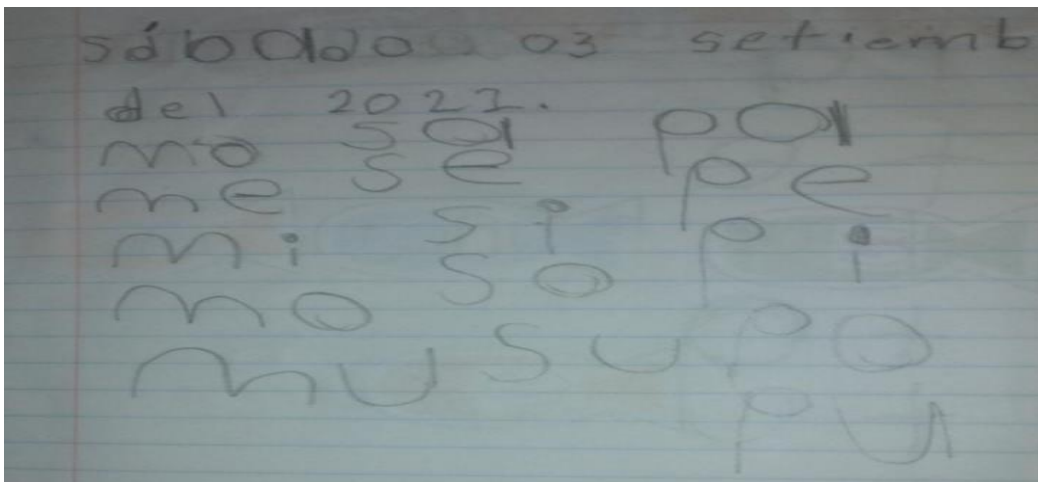 sábado 03 setiemb
del 2021.
mo sa pa
me se pe
mi si pi
mo so po
mu su pu